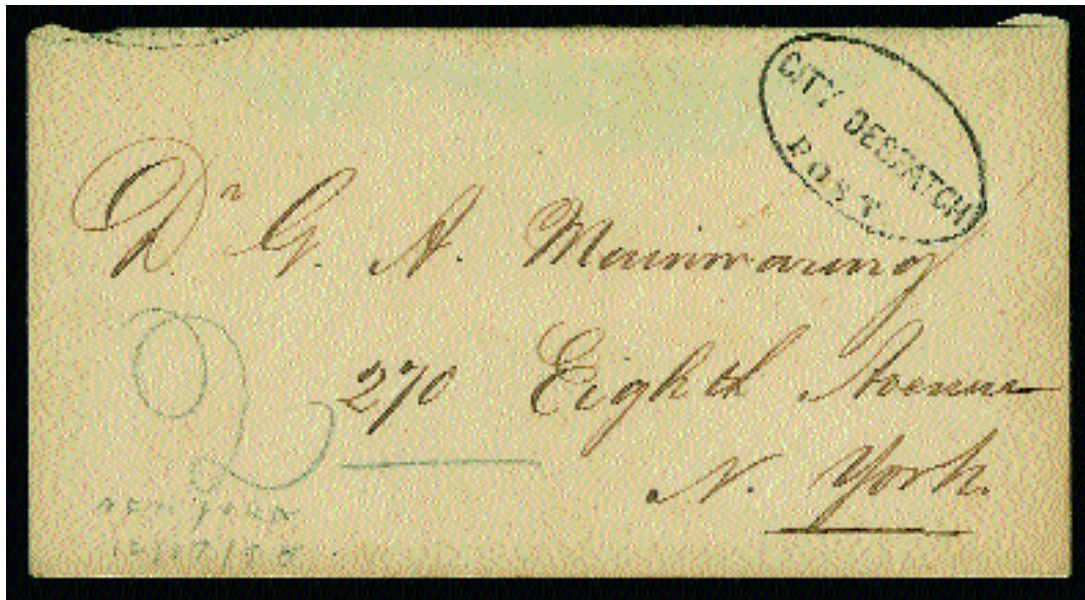 CITY DESPATCH
POST.
Dr. G. A. Mainwaring
2
270 Eighth Avenue
N. York.
NEW YORK